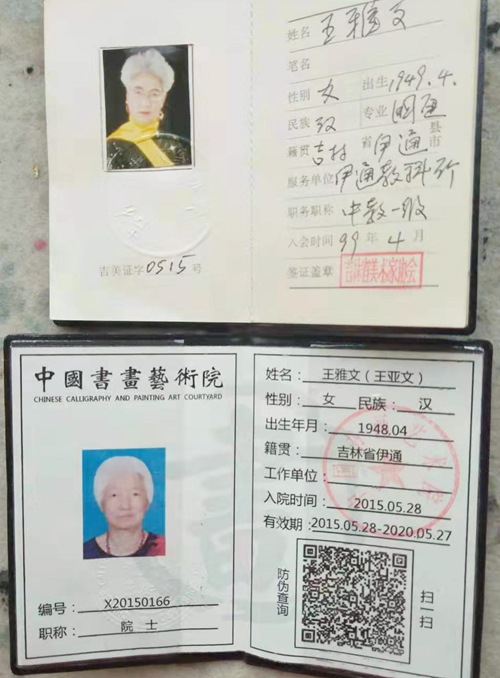 姓名 王雅文
笔名
性别 女 出生 1949.4.
民族 汉 专业 国画
籍贯 吉林 省 伊通 县市
服务单位 伊通教科所
职务职称 中教一级
入会时间 99 年 4 月
签证盖章 吉林省美术家协会
吉美证字 0515 号
中國書畫藝術院
CHINESE CALLIGRAPHY AND PAINTING ART COURTYARD
编号： X20150166
职称： 院 士
姓名： 王雅文（王亚文）
性别： 女 民族： 汉
出生年月： 1948.04
籍贯： 吉林省伊通
工作单位：
入院时间： 2015.05.28
有效期：2015.05.28-2020.05.27
防伪查询
扫一扫